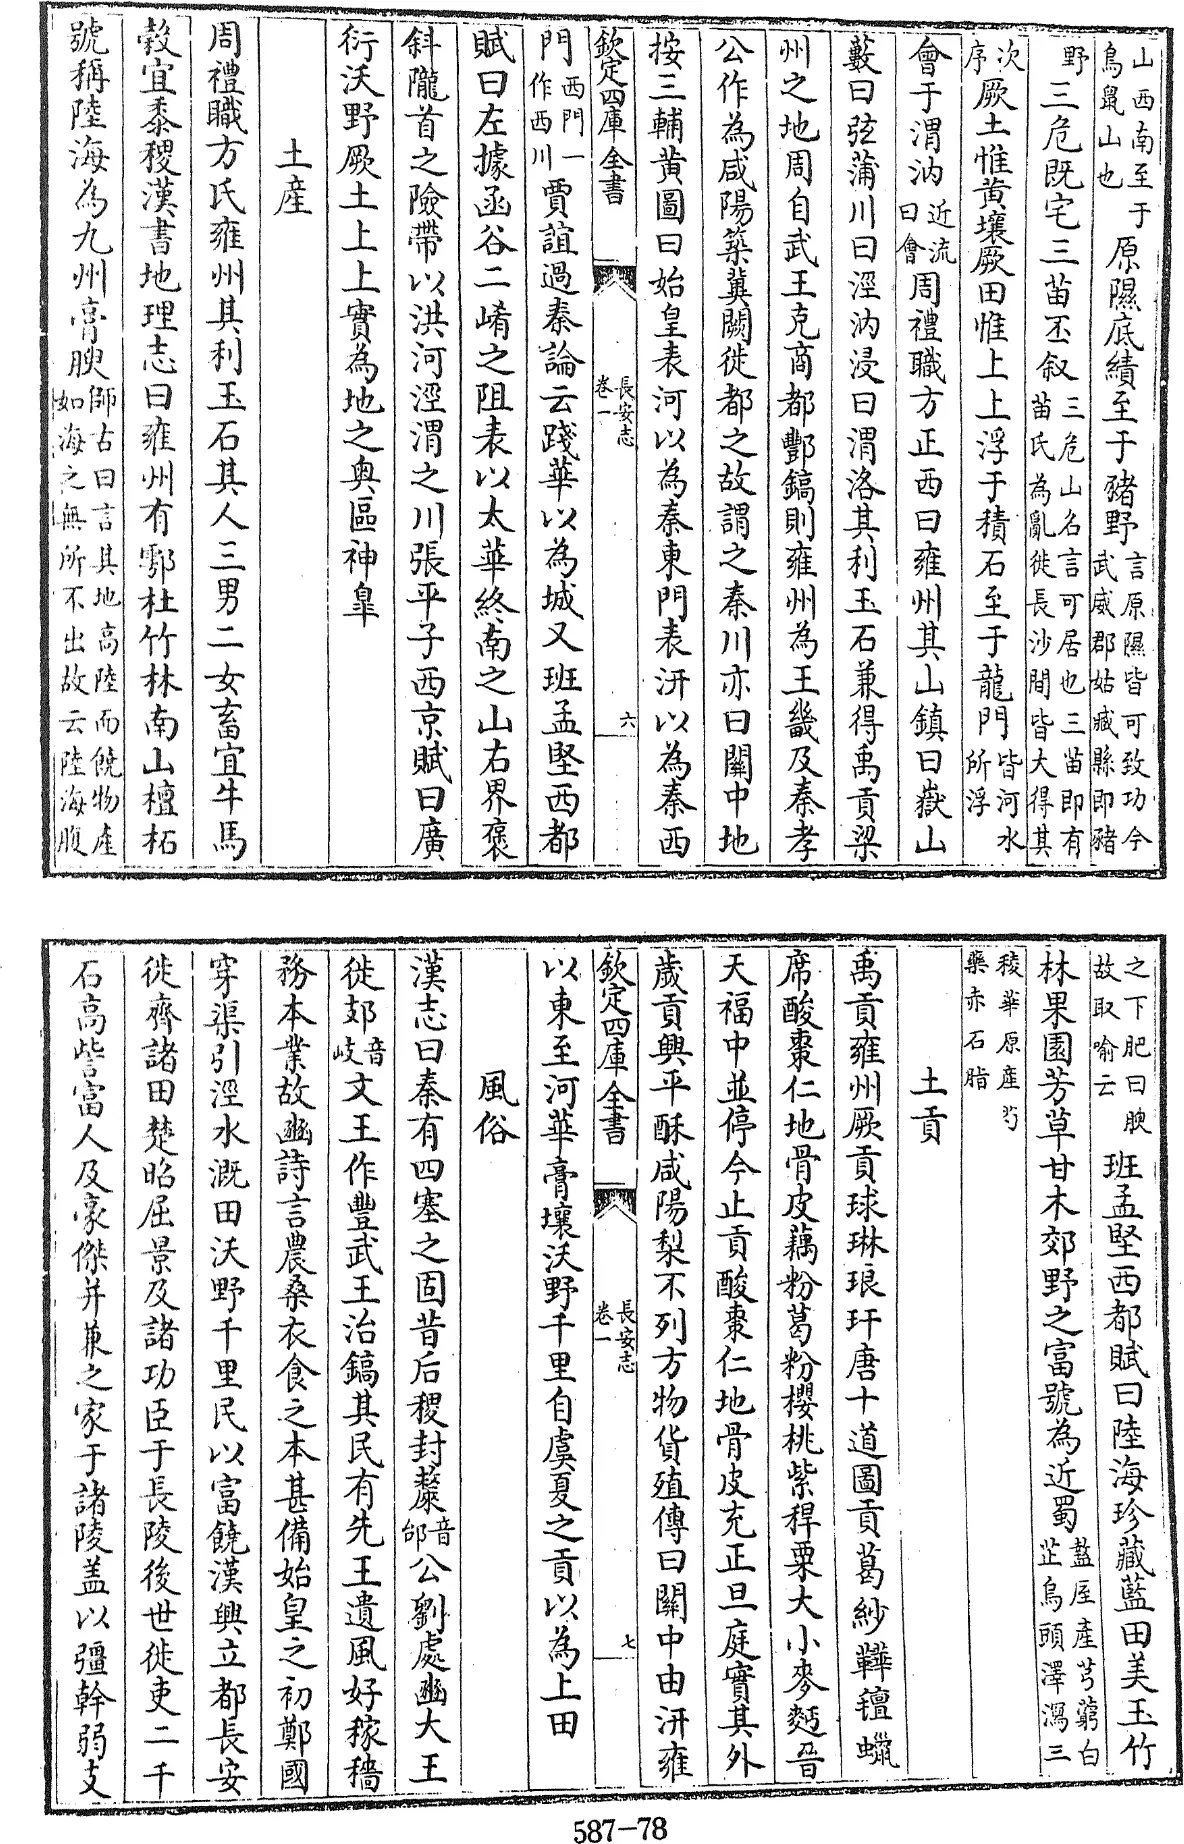 山西南至于
鳥鼠山也
原隰底績至于豬野
言原隰皆可致功今
武威郡姑臧縣即豬
野
三危既宅三苗丕叙
三危山名言可居也三苗即有
苗氏為亂徙長沙間皆大得其
次
序
厥土惟黄壤厥田惟上上浮于積石至于龍門
皆河水
所浮
會于渭汭
近流
曰會
周禮職方正西曰雍州其山鎮曰嶽山
藪曰弦蒲川曰涇汭浸曰渭洛其利玉石兼得禹貢梁
州之地周自武王克商都酆鎬則雍州為王畿及秦孝
公作為咸陽築冀闕徙都之故謂之秦川亦曰關中地
按三輔黄圖曰始皇表河以為秦東門表汧以為秦西
欽定四庫全書
長安志
卷一
六
門
西門一
作西川
賈誼過秦論云踐華以為城又班孟堅西都
賦曰左據函谷二崤之阻表以太華終南之山右界褒
斜隴首之險帶以洪河涇渭之川張平子西京賦曰廣
衍沃野厥土上上實為地之奥區神臯
土産
周禮職方氏雍州其利玉石其人三男二女畜宜牛馬
穀宜黍稷漢書地理志曰雍州有鄠杜竹林南山檀柘
號稱陸海為九州膏腴
師古曰言其地高陸而饒物産
如海之無所不出故云陸海腹
之下肥曰腴
故取喻云
班孟堅西都賦曰陸海珍藏藍田美玉竹
林果園芳草甘木郊野之富號為近蜀
盩厔產芎藭白
芷烏頭澤瀉三
稜華原產芍
藥赤石脂
土貢
禹貢雍州厥貢球琳琅玕唐十道圖貢葛紗鞾氊蠟
席酸棗仁地骨皮藕粉葛粉櫻桃紫稈粟大小麥麪晉
天福中並停今止貢酸棗仁地骨皮充正旦庭實其外
歲貢興平酥咸陽梨不列方物貨殖傳曰關中由汧雍
欽定四庫全書
長安志
卷一
七
以東至河華膏壤沃野千里自虞夏之貢以為上田
風俗
漢志曰秦有四塞之固昔后稷封斄
音
邰
公劉處豳大王
徙郂
音
岐
文王作豐武王治鎬其民有先王遺風好稼穡
務本業故豳詩言農桑衣食之本甚備始皇之初鄭國
穿渠引涇水溉田沃野千里民以富饒漢興立都長安
徙齊諸田楚昭屈景及諸功臣于長陵後世徙吏二千
石高訾富人及豪傑并兼之家于諸陵盖以彊幹弱支
587-78